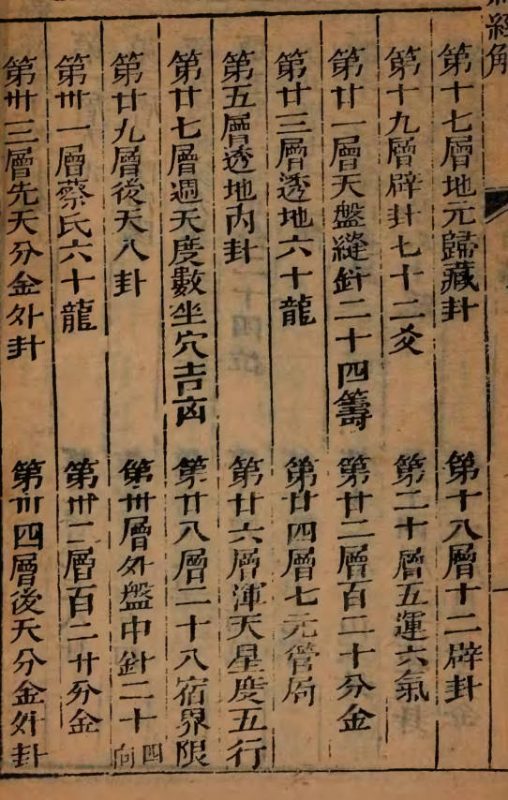 經角
第十七層地元歸藏卦
第十八層十二辟卦
第十九層辟卦七十二爻
第二十層五運六氣
第廿一層天盤縫針二十四籌
第廿二層百二十分金
第廿三層透地六十龍
第廿四層七元管局
第五層透地內卦
第廿六層渾天星度五行
第廿七層週天度數坐穴吉凶
第廿八層二十八宿界限
第廿九層後天八卦
第卅層外盤中針二十四向
第卅一層蔡氏六十龍
第卅二層百二十分金
第卅三層先天分金外卦
第卅四層後天分金外卦